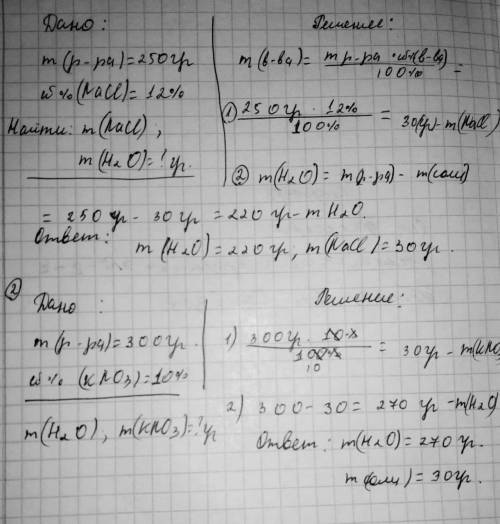 Дано:
m(р-ра)=250гр
ω%(NaCl)=12%
Найти: m(NaCl),
m(H₂O)=?гр.
Решение:
m(в-ва)= m р-ра · ω%(в-ва) / 100% =
① 250гр · 12% / 100% = 30(гр)-m(NaCl)
② m(H₂O)=m(р-ра)- m(соли)
= 250 гр - 30 гр = 220 гр - m H₂O.
Ответ: m(H₂O)=220 гр, m(NaCl)=30гр.
②
Дано:
m(р-ра)=300гр.
ω%(KNO₃)=10%
m(H₂O), m(KNO₃)=?гр
Решение:
1) 300гр · 10% / 100% = 30гр - m(KNO₃
10
2) 300-30=270 гр -m(H₂O)
Ответ: m(H₂O)=270 гр.
m(соли)=30гр.